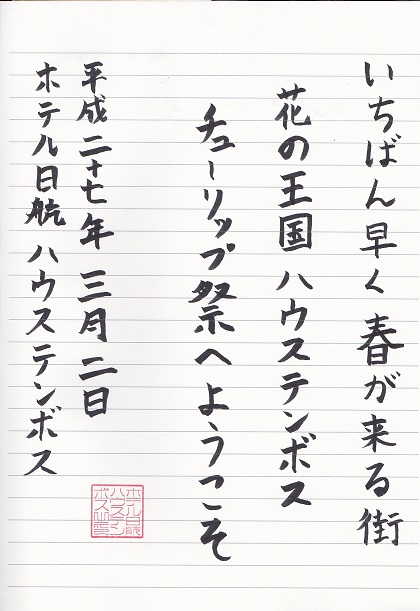 いちばん早く春が来る街
花の王国ハウステンボス
チューリップ祭へようこそ
平成二十七年 三月二日
ホテル日航ハウステンボス